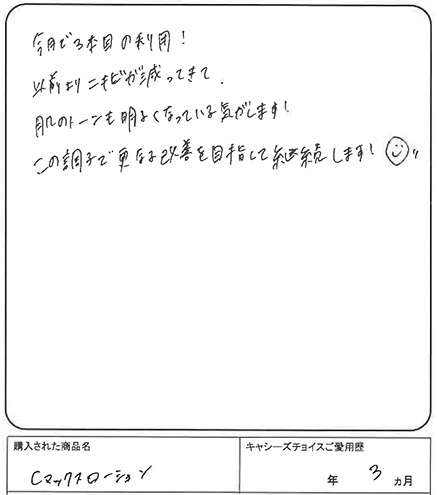 今月で3本目の利用!
以前よりニキビが減ってきて、
肌のトーンも明るくなっている気がします!
この調子で更なる改善を目指して継続します!
購入された商品名
キャシーズチョイスご愛用歴
Cマックスローション
年 3 ヵ月